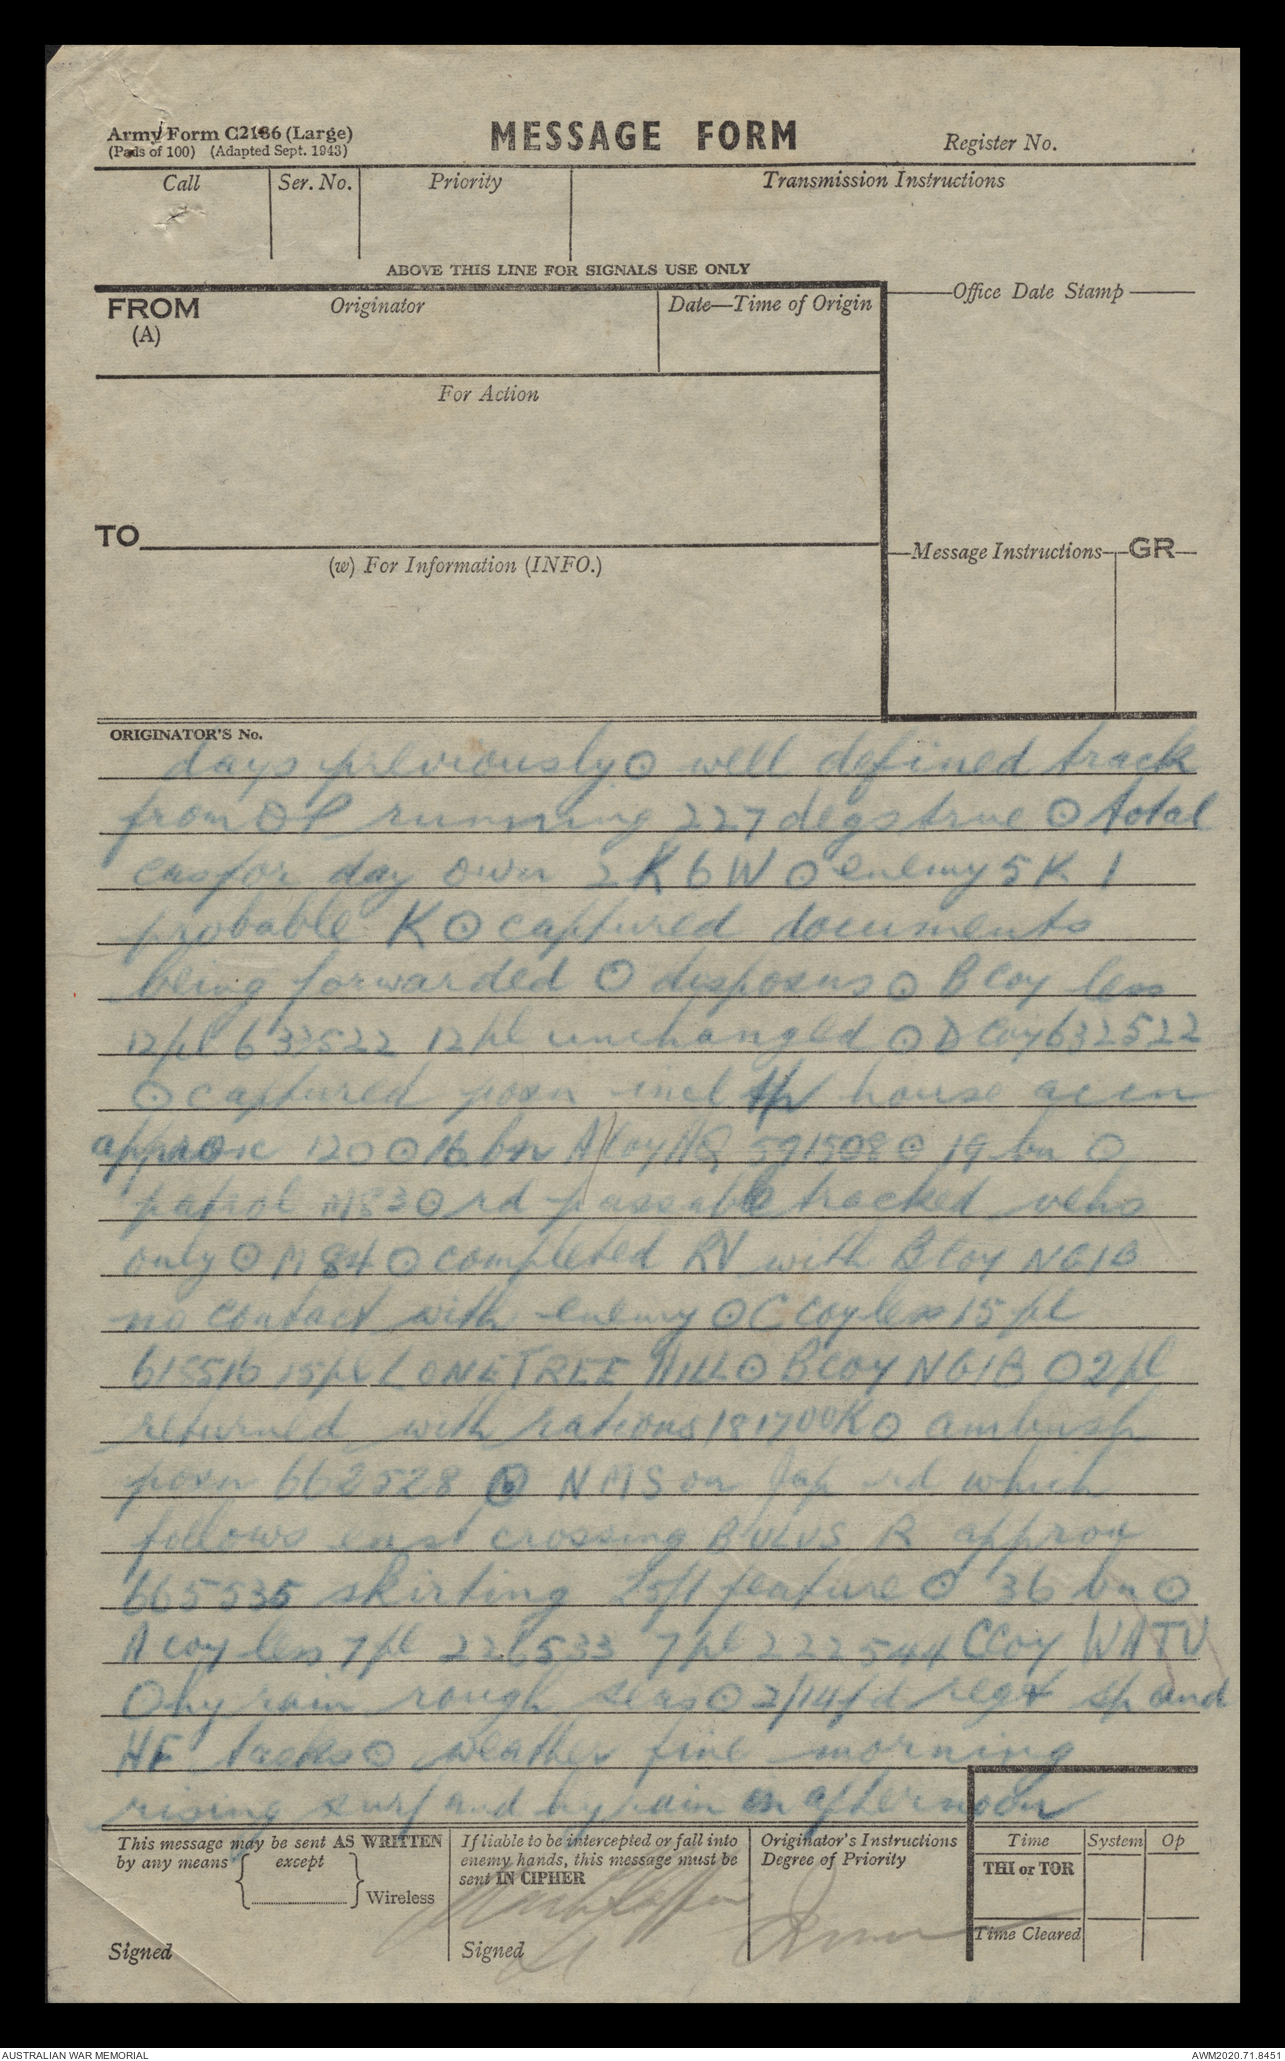 Army Form C2136 (Large)
(Pads of 100) (Adapted Sept. 1943)
MESSAGE FORM
Register No.
Call Ser. No. Priority Transmission Instructions
ABOVE THIS LINE FOR SIGNALS USE ONLY
FROM Originator Date—Time of Origin
(A)
Office Date Stamp
For Action
TO
(w) For Information (INFO.)
Message Instructions GR
ORIGINATOR'S No.
days previously ⊙ well defined track
from OP running 227 degs true ⊙ total
cas for day own 2 K 6 W ⊙ enemy 5 K 1
probable K ⊙ captured documents
being forwarded ⊙ disposns ⊙ B Coy less
12 pl 633522 12 pl unchanged ⊙ D Coy 632522
⊙ captured posn incl house accn
approx 120 ⊙ 16 bn A Coy HQ 591508 ⊙ 19 bn ⊙
patrol M83 ⊙ rd passable tracked vehs
only ⊙ M 84 ⊙ completed RV with B Coy NGIB
no contact with enemy ⊙ C Coy less 15 pl
615516 15 pl LONE TREE HILL ⊙ B Coy NGIB ⊙ 2 pl
returned with rations 181700K ⊙ ambush
posn 662528 ⊙ NMS on Jap rd which
follows east crossing BULUS R approx
665535 skirting feature ⊙ 36 bn ⊙
A coy less 7 pl 226533 7 pl 222544 C Coy WATU
⊙ hy rain rough seas ⊙ 2/14 fd regt sp and
HF tasks ⊙ weather fine morning
rising surf and hy rain in afternoon
This message may be sent AS WRITTEN
by any means except
Wireless
Signed
If liable to be intercepted or fall into
enemy hands, this message must be
sent IN CIPHER
Signed
Originator's Instructions
Degree of Priority
Time System Op
THI or TOR
Time Cleared
AUSTRALIAN WAR MEMORIAL
AWM2020.71.8451